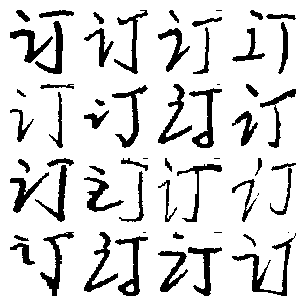 订订订订
订订订订
订订订订
订订订订